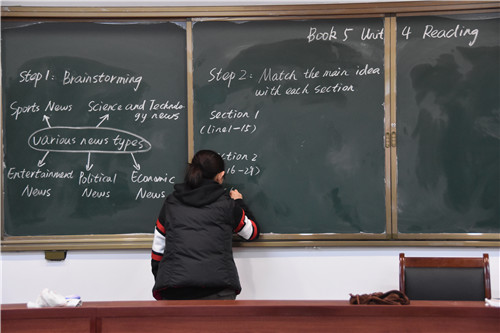 Book 5 Unit 4 Reading
Step 1: Brainstorming
Sports News
Science and Technolo
gy news
various news types
Entertainment
News
Political
News
Economic
News
Step 2: Match the main idea
with each section
Section 1
(line 1-15)
ction 2